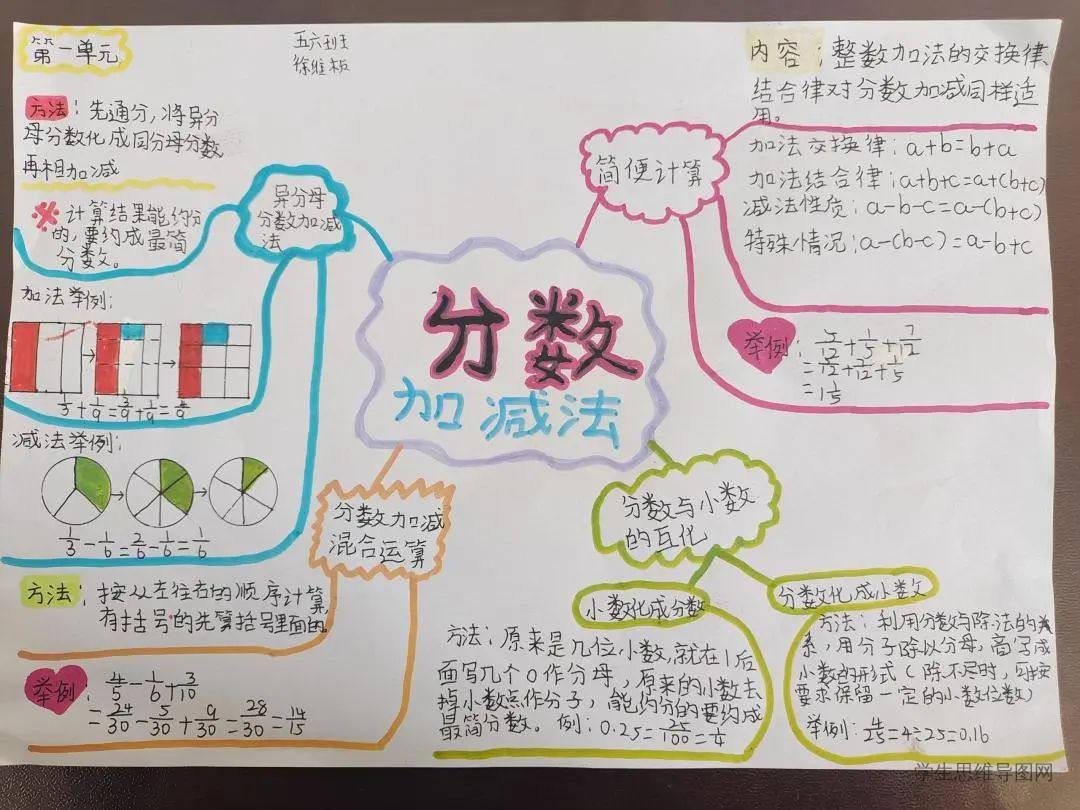 第一单元
五六班
方法：先通分，将异分
母分数化成同分母分数
再相加减
※计算结果能约分
的，要约成最简
分数。
异分母
分数加减
法
加法举例：
1/3+1/9=3/9+1/9=4/9
减法举例：
1/3-1/6=2/6-1/6=1/6
分数
加减法
简便计算
内容：整数加法的交换律
结合律对分数加减同样适
用。
加法交换律：a+b=b+a
加法结合律：a+b+c=a+(b+c)
减法性质：a-b-c=a-(b+c)
特殊情况：a-(b-c)=a-b+c
举例：5/12+1/5+7/12
=5/12+7/12+1/5
=1 1/5
分数加减
混合运算
方法：按从左往右的顺序计算，
有括号的先算括号里面的。
举例：4/5-1/6+3/10
=24/30-5/30+9/30=28/30=14/15
分数与小数
的互化
小数化成分数
方法：原来是几位小数，就在1后
面写几个0作分母，原来的小数去
掉小数点作分子，能约分的要约成
最简分数。例：0.25=25/100=1/4
分数化成小数
方法：利用分数与除法的关
系，用分子除以分母，商写成
小数的形式（除不尽时，可按
要求保留一定的小数位数）
举例：4/25=4÷25=0.16
学生思维导图网